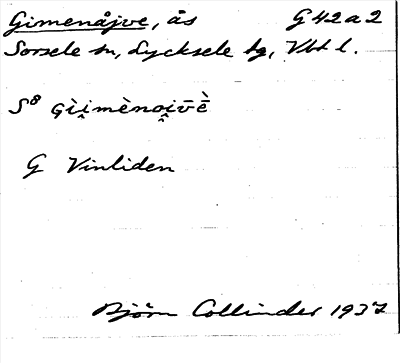 Gimenåjve, ås G 42 a 2
Sorsele sn, Lycksele lg, Vbt l.
S⁸ gìi̭mènoi̭v̄ḕ
G Vinliden
Björn Collinder 1937